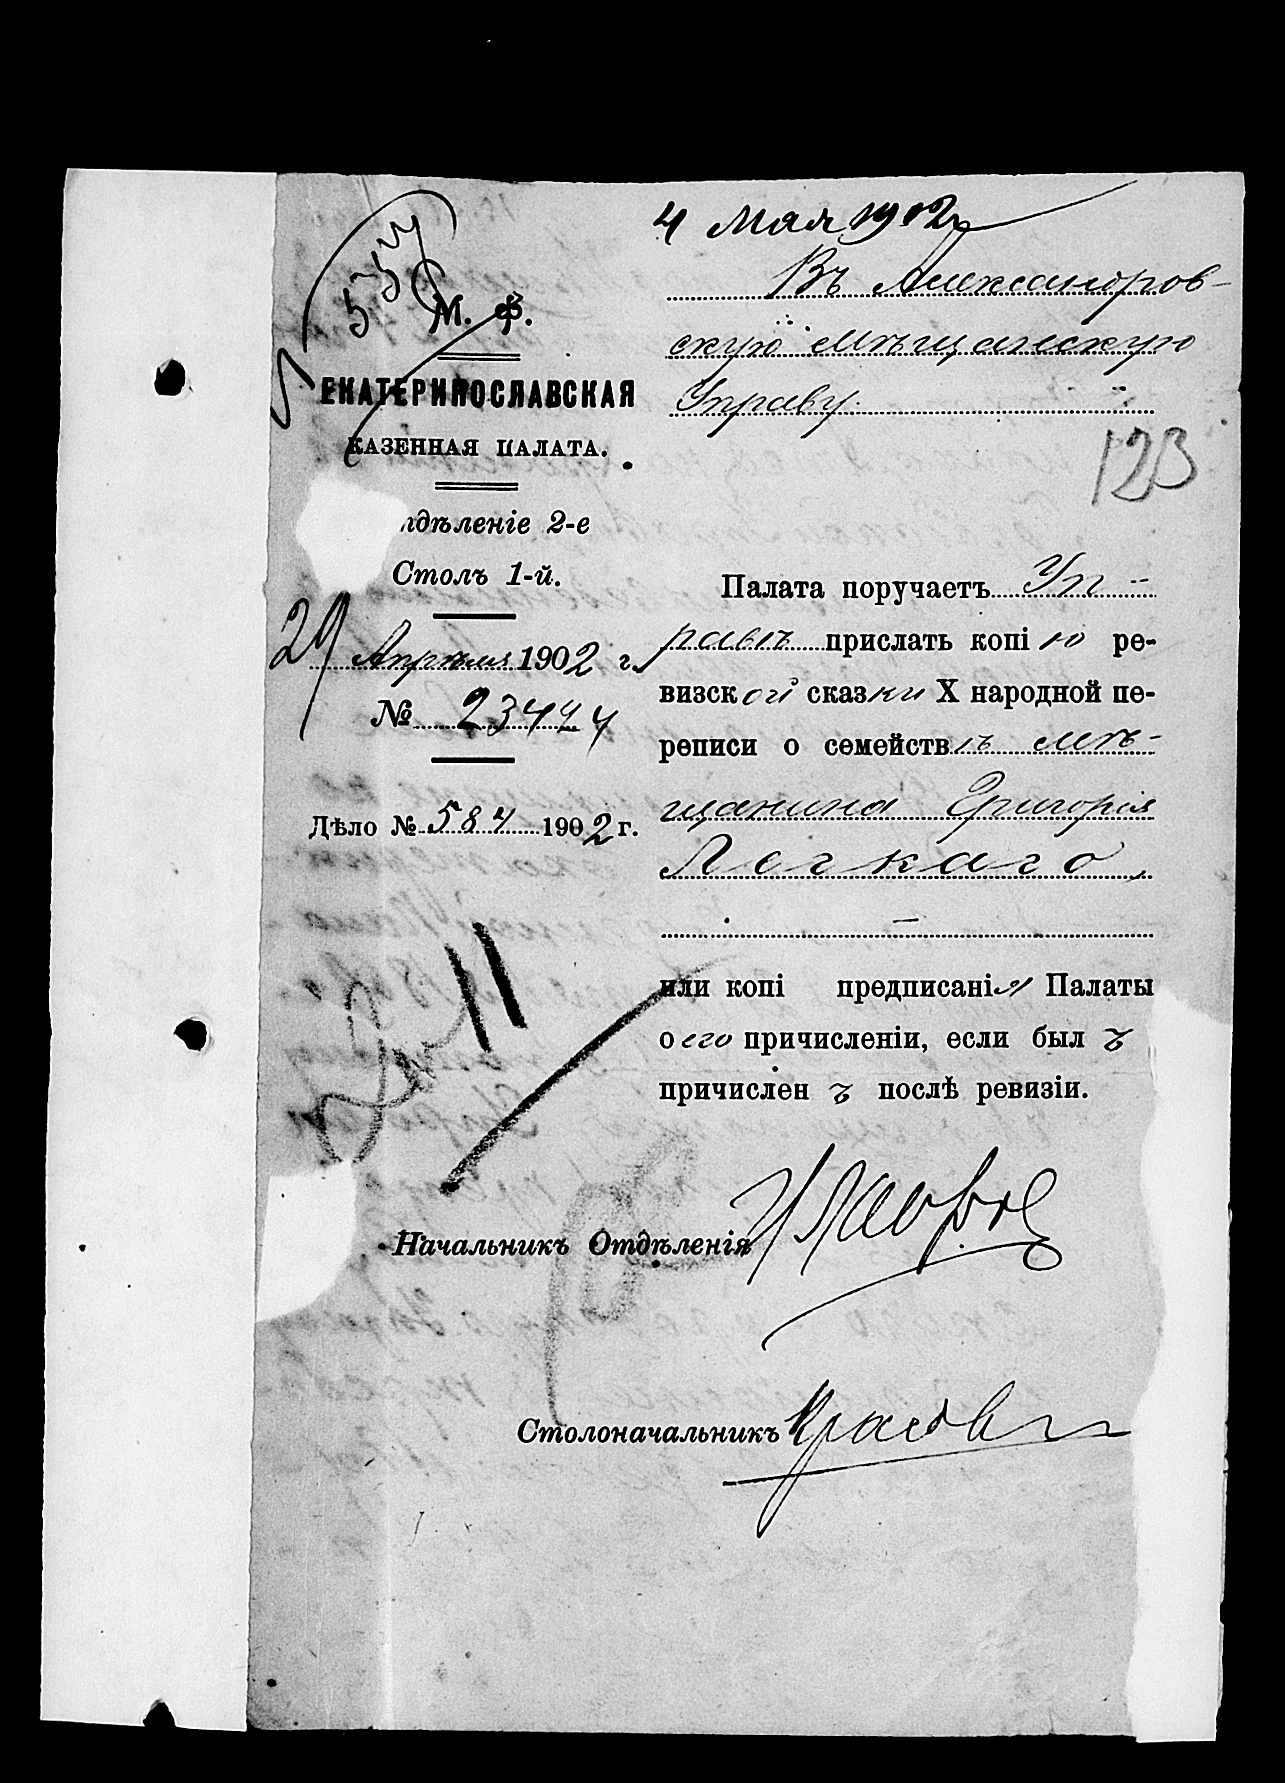 4 Мая 1902 г.
554
М. Ф.
ЕКАТЕРИНОСЛАВСКАЯ
КАЗЕННАЯ ПАЛАТА.
тдѣленіе 2-е
Столъ 1-й.
29 Апрѣля 1902 г.
№ 23444
Дѣло № 584 1902 г.
Въ Александров-
скую Мѣщанскую
Управу.
123
Палата поручаетъ Уп-
равѣ прислать копію ре-
визской сказки X народной пе-
реписи о семействѣ мѣ-
щанина Григорія
Легкаго,
или копі предписанія Палаты
о его причисленіи, если былъ
причисленъ послѣ ревизіи.
11
Начальникъ Отдѣленія
Столоначальникъ